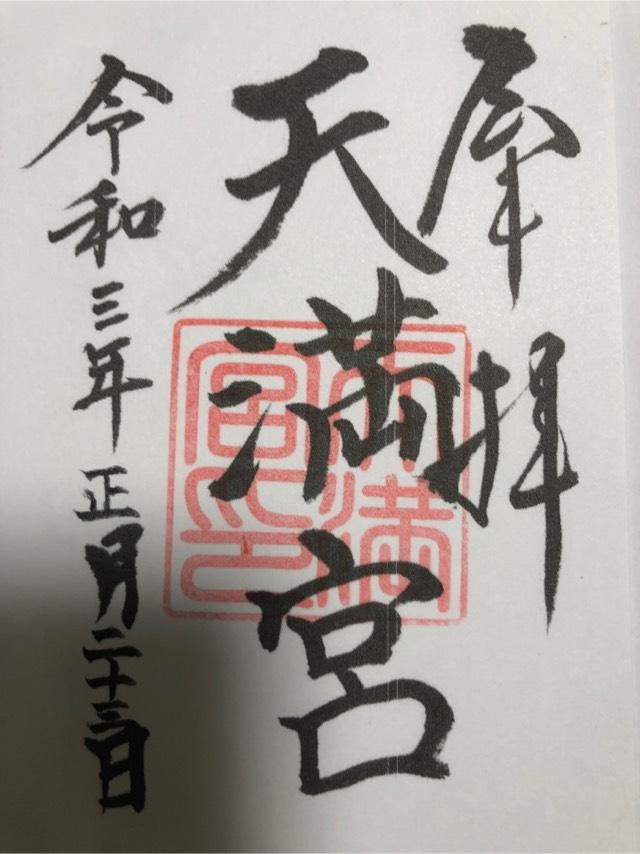 奉拝
天満宮
天満宮印
令和三年正月二十三日